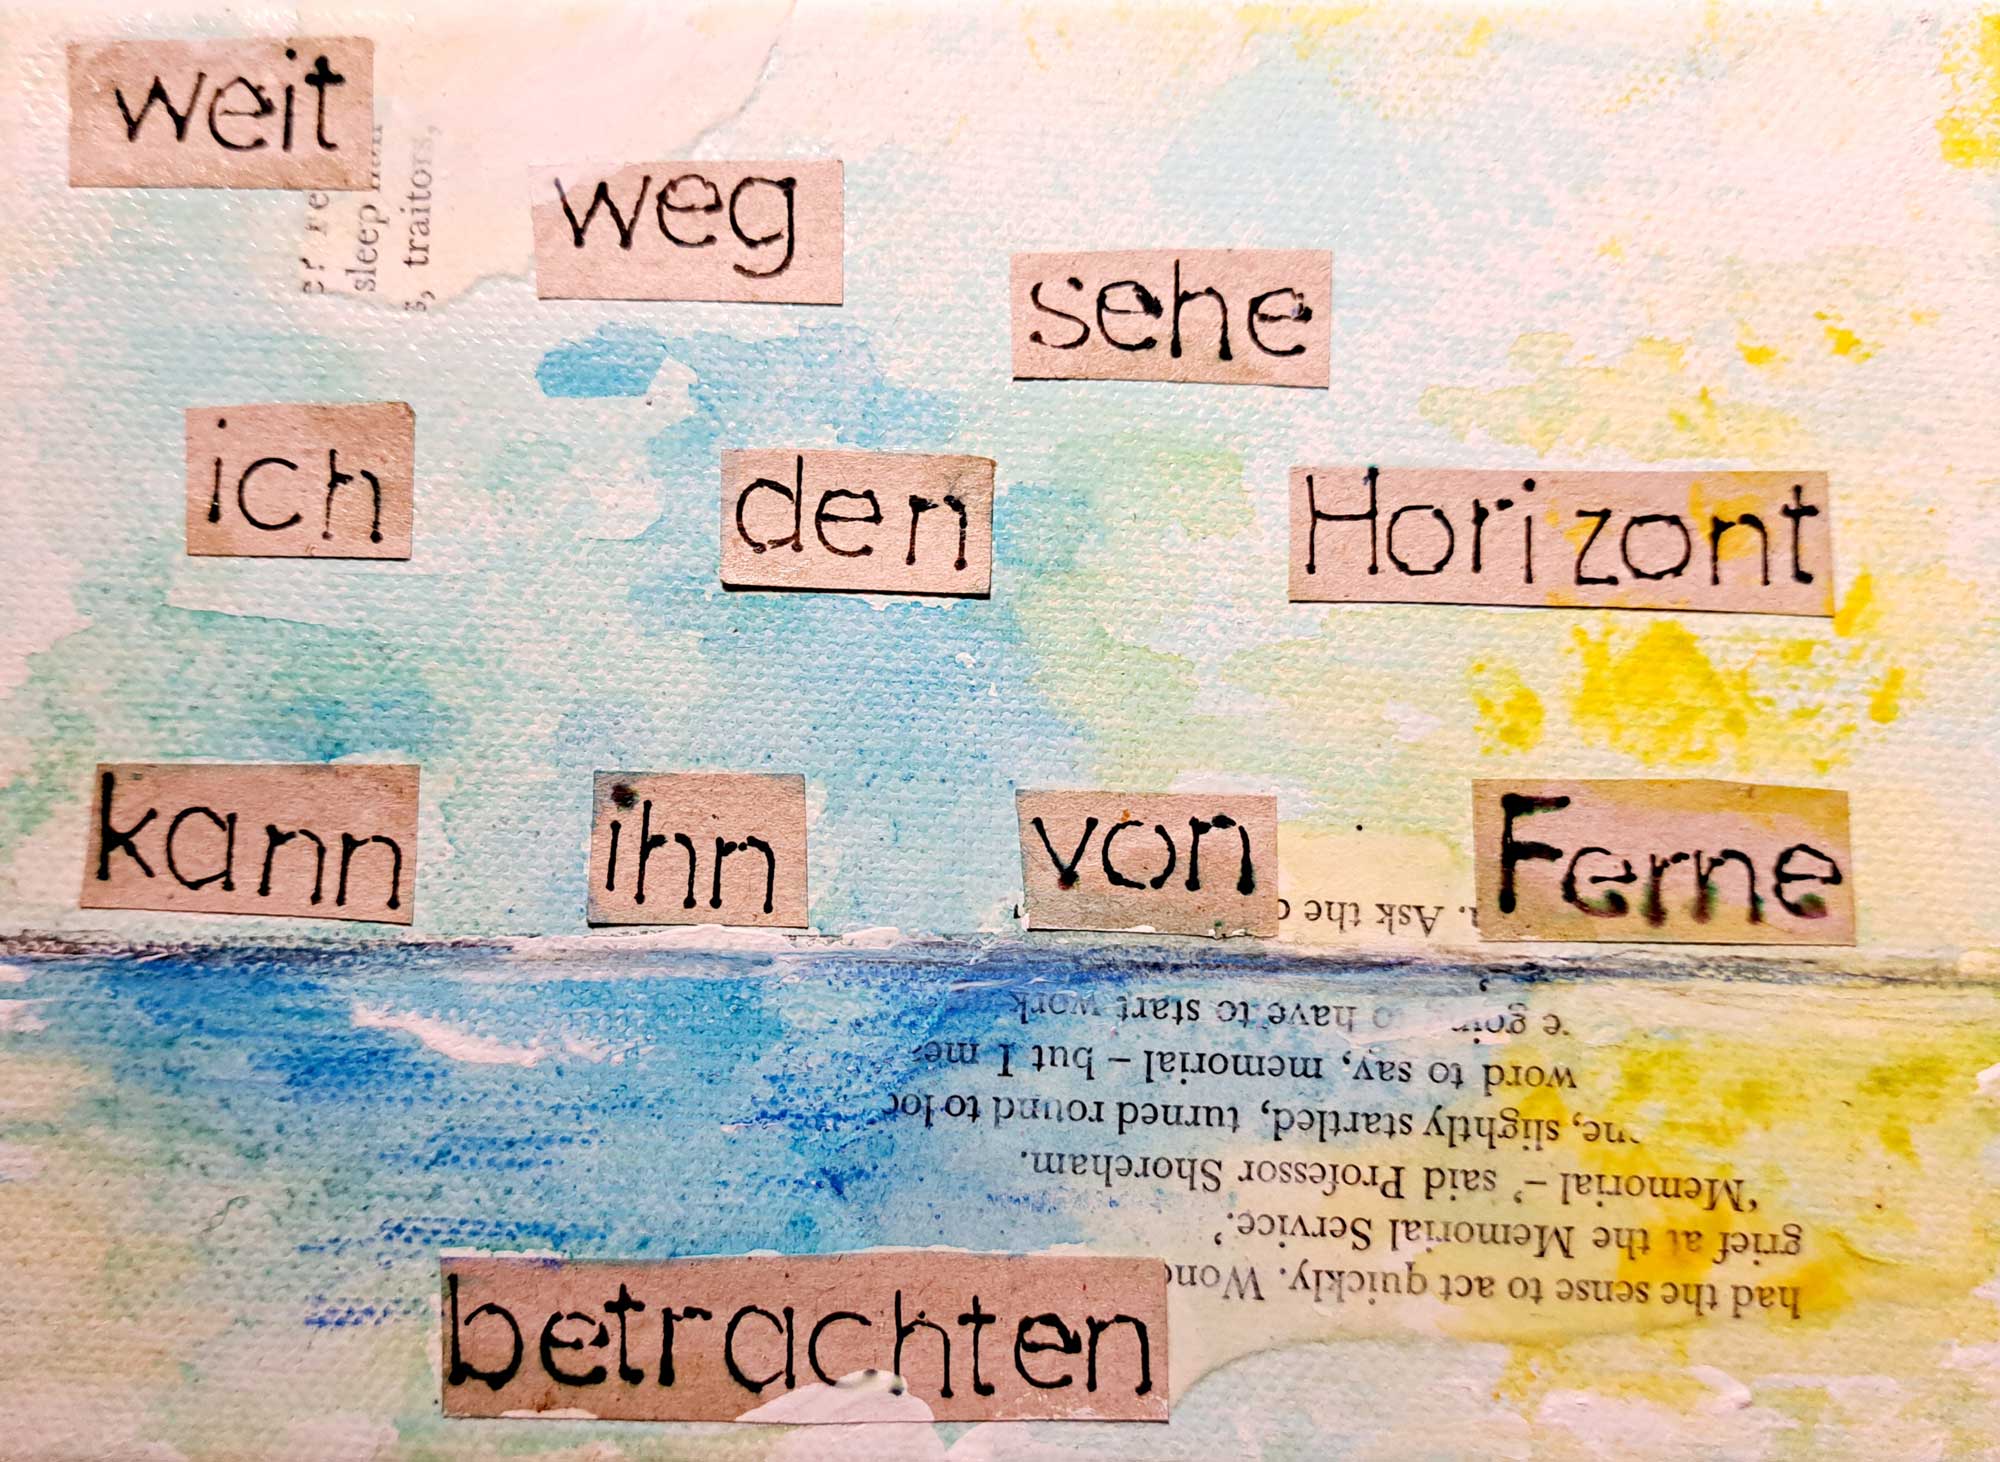 weit
weg
sehe
ich den Horizont
kann ihn von Ferne
betrachten
sleep
traitors,
. Ask the
have to start work
word to say, memorial – but I me
slightly startled, turned round to
'Memorial –' said Professor Shoreham.
grief at the Memorial Service.'
had the sense to act quickly.